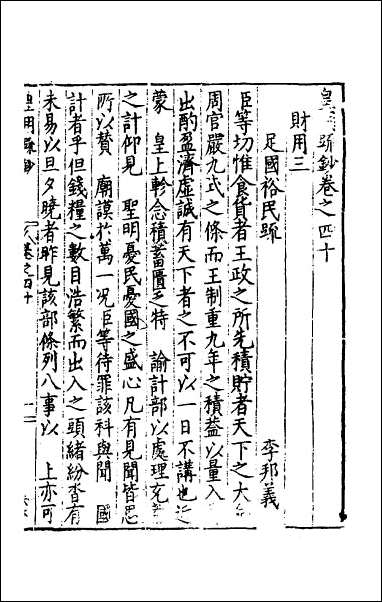 皇明疏鈔卷之四十
財用三
足國裕民疏 李邦義
臣等切惟食貨者王政之所先積貯者天下之大命
周官嚴九式之條而王制重九年之積益以量入
出酌盈濟虛誠有天下者之不可以一日不講也近
蒙 皇上軫念積蓄匱乏特 諭計部以處理充
之計仰見 聖明憂民憂國之盛心凡有見聞皆思
所以贊 廟謨於萬一况臣等待罪該科與聞 國
計者乎但錢糧之數目浩繁而出入之頭緒紛沓有
未易以旦夕曉者昨見該部條列八事以 上亦可
皇明疏鈔 卷之四十 一